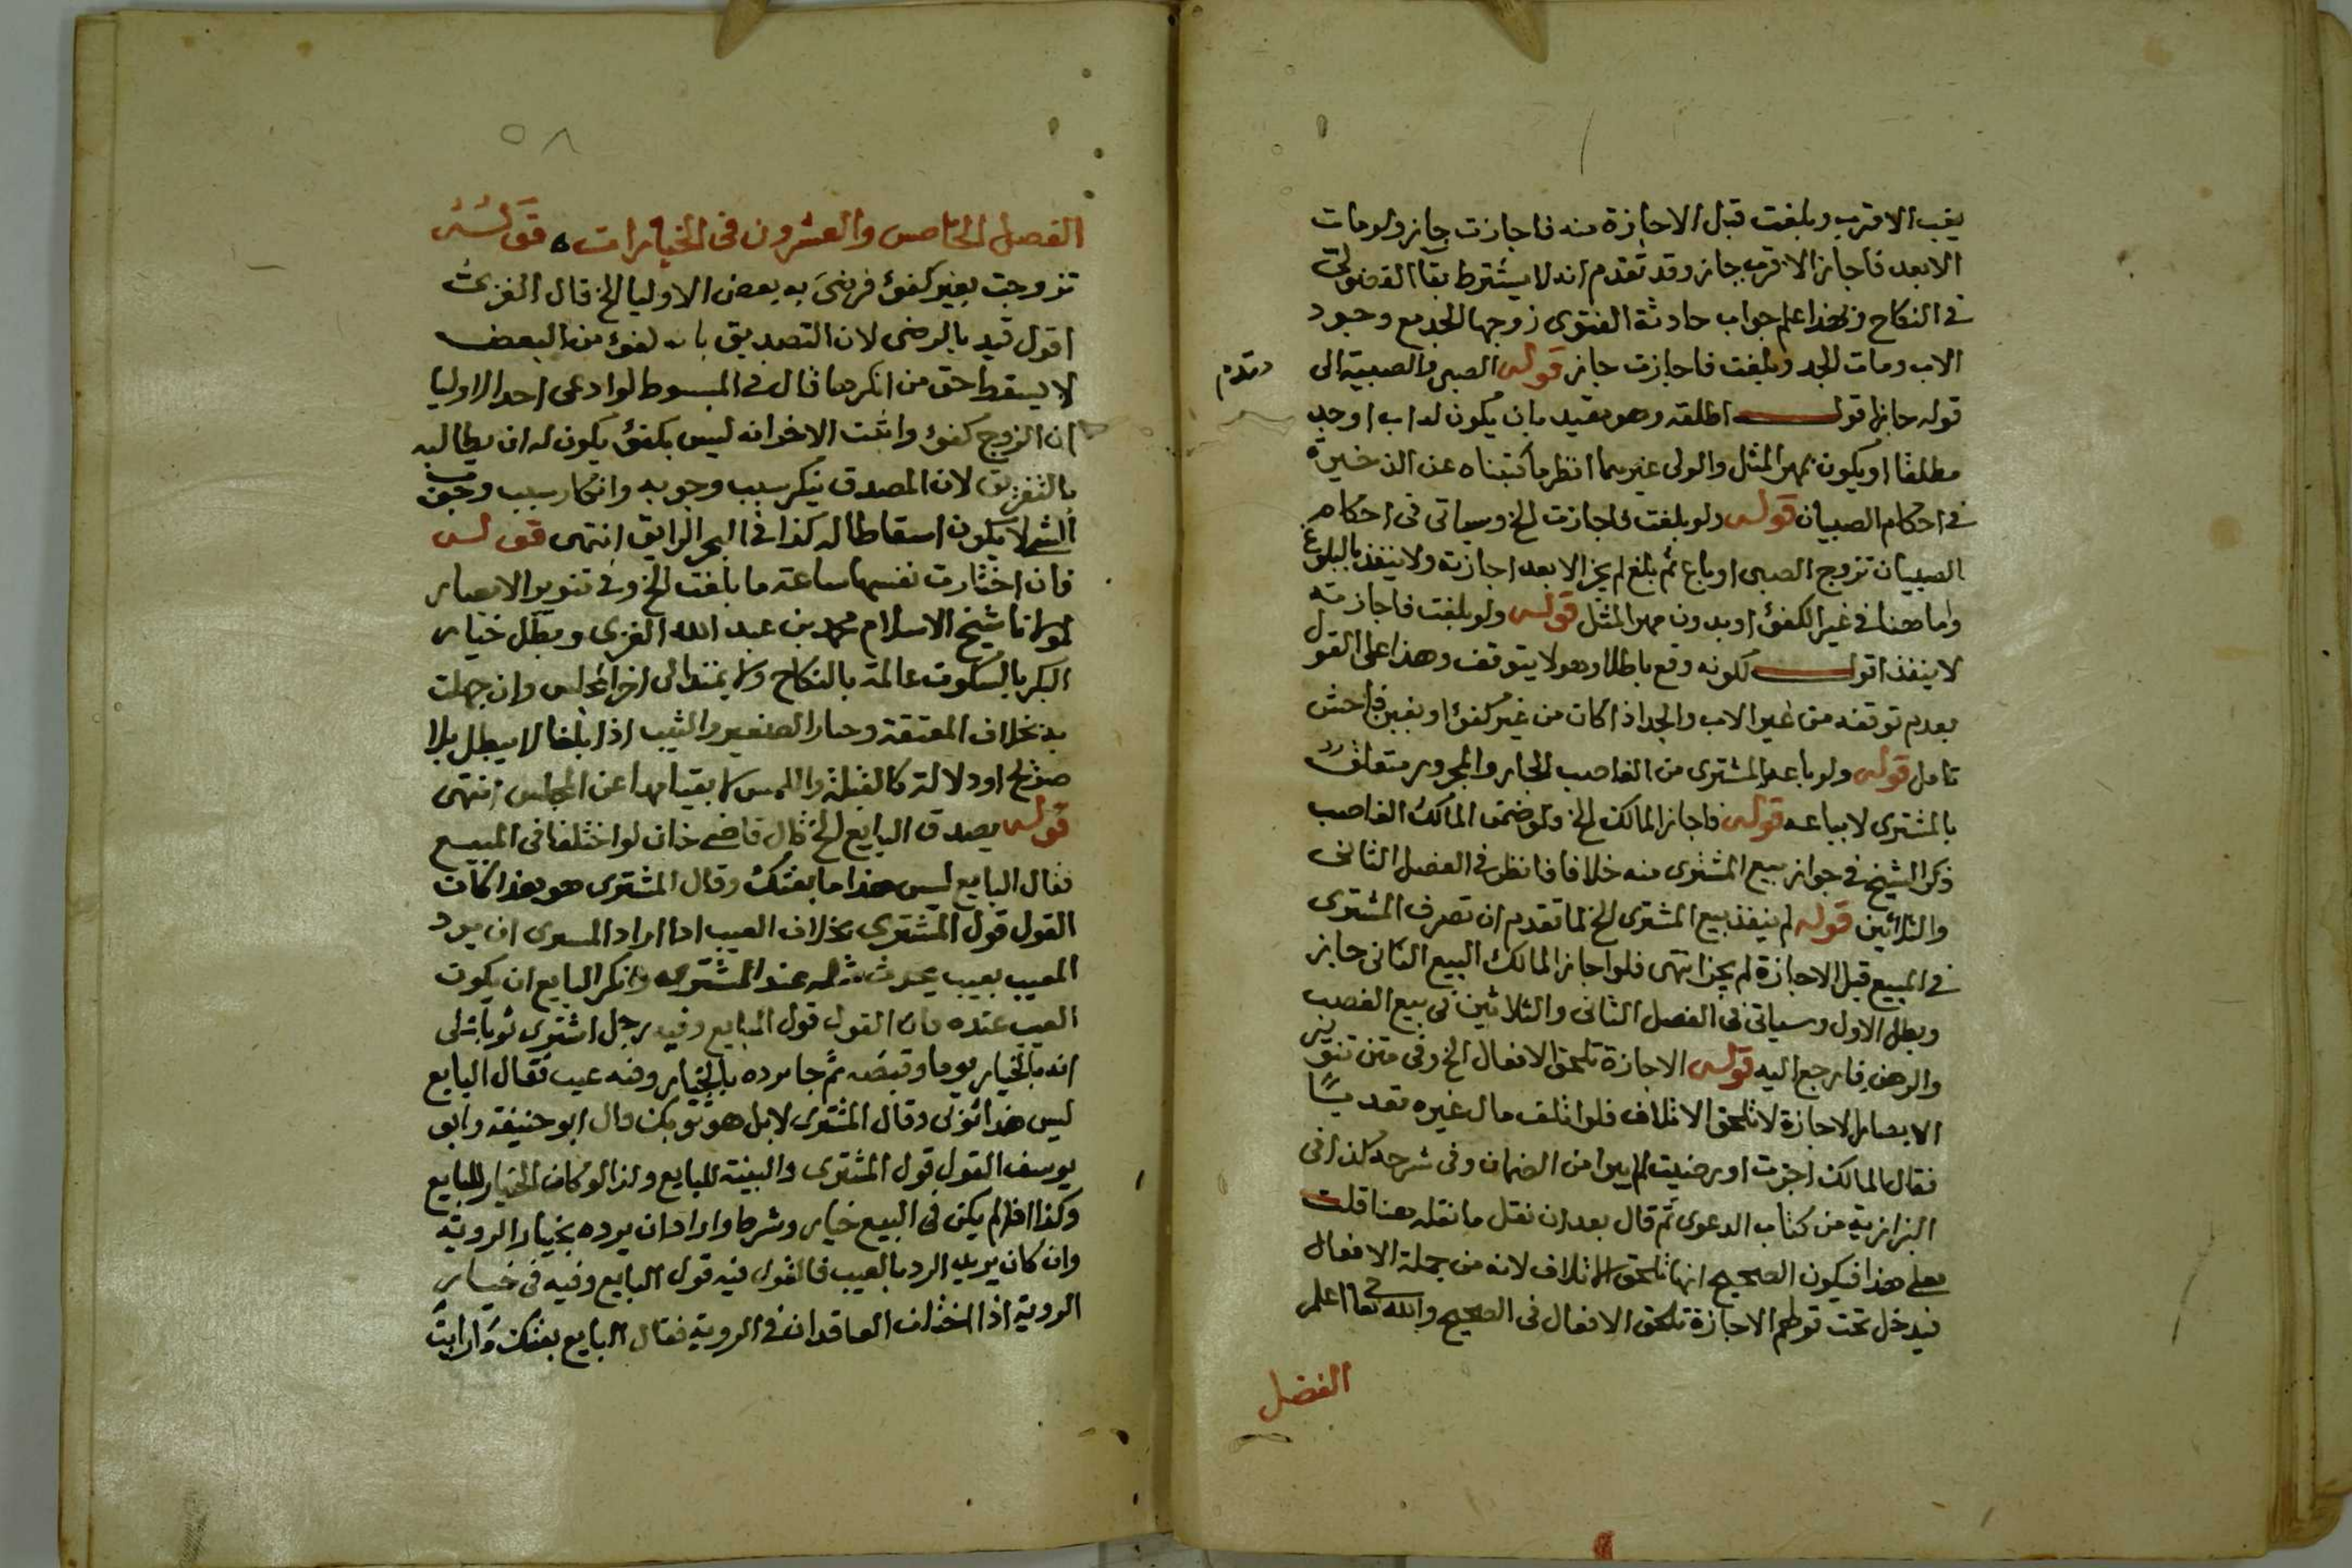 يغب الاقرب وبلغت قبل الاجازة منه فاجازت جاز ولو مات
الابعد فاجاز الاقرب جاز وقد تقدم انه لا يشترط بقا الفضولى
فى النكاح وبهذا علم جواب حادثة الفتوى زوجها الجد مع وجود
الاب ومات الجد وبلغت فاجازت جاز قوله الصبى والصبية الى
وتقدم
قوله جاز اقول اطلقه وهو مقيد بان يكون له اب او جد
مطلقا او يكون بمهر المثل والولى غيرهما انظر ما كتبناه عن الذخيرة
فى احكام الصبيان قوله ولو بلغت فاجازت الخ وسياتى فى احكام
الصبيان تزوج الصبى او باع ثم بلغ لم يجز الا بعد اجازته ولا ينفذ بالبلوغ
واما هنا فى غير الكفؤ او بدون مهر المثل قوله ولو بلغت فاجازته
لا ينفذ اقول لكونه وقع باطلا وهو لا يتوقف وهذا على القول
بعدم توقفه من غير الاب والجد اذا كان من غير كفؤ او بغبن فاحش
تامل قوله ولو باعه المشترى من الغاصب الجار والمجرور متعلق
بالمشترى لا بباعه قوله فاجاز المالك الخ ولو ضمن المالك الغاصب
ذكر الشيخ فى جواز بيع المشترى منه خلافا فانظر فى الفصل الثانى
والثلاثين قوله لم ينفذ بيع المشترى الخ لما تقدم ان تصرف المشترى
فى المبيع قبل الاجازة لم يجز انتهى فلو اجاز المالك البيع الثانى جاز
وبطل الاول وسياتى فى الفصل الثانى والثلاثين فى بيع الغصب
والرهن فارجع اليه قوله الاجازة تلحق الافعال الخ وفى متن تنوير
الابصار الاجازة لا تلحق الاتلاف فلو اتلف مال غيره تعديًا
فقال المالك اجزت او رضيت لم يبرا من الضمان وفى شرحه كذا فى
البزازية من كتاب الدعوى ثم قال بعد ان نقل ما نقله هنا قلت
فعلى هذا فيكون الصحيح انها تلحق الاتلاف لانه من جملة الافعال
فيدخل تحت قولهم الاجازة تلحق الافعال فى الصحيح والله تعالى اعلم
الفصل
٥٨
الفصل الخامس والعشرون فى الخيارات ه قوله
تزوجت بغير كفؤ فرضى به بعض الاوليا الخ قال الغزى
اقول قيد بالرضى لان التصديق بانه كفؤ من البعض
لا يسقط حق من انكرها قال فى المبسوط لو ادعى احد الاوليا
ان الزوج كفؤ واثبت الاخر انه ليس بكفؤ يكون له ان يطالبه
بالتفريق لان المصدق ينكر سبب وجوبه وانكار سبب وجوب
الشى لا يكون اسقاطا له كذا فى البحر الرايق انتهى قوله
فان اختارت نفسها ساعة ما بلغت الخ وفى تنوير الابصار
لمولانا شيخ الاسلام محمد بن عبد الله الغزى وبطل خيار
البكر بالسكوت عالمة بالنكاح ولا يمتد الى اخر المجلس وان جهلت
به بخلاف المعتقة وخيار الصغير والثيب اذا بلغا لا يبطل بلا
صريح او دلالة كالقبلة واللمس لا بقيامها عن المجلس انتهى
قوله يصدق البايع الخ قال قاضى خان لو اختلفا فى المبيع
فقال البايع ليس هذا ما بعتك وقال المشترى هو هذا كان
القول قول المشترى بخلاف العيب اذا اراد المشترى ان يرد
المعيب بعيب يحدث مثله عند المشترى وانكر البايع ان يكون
العيب عنده فان القول قول البايع وفيه رجل اشترى ثوبا على
انه بالخيار يوما وقبضه ثم جا يرده بالخيار وفيه عيب فقال البايع
ليس هذا ثوبى وقال المشترى لا بل هو ثوبك قال ابو حنيفة وابو
يوسف القول قول المشترى والبينة للبايع وكذا لو كان الخيار للبايع
وكذا اذا لم يكن فى البيع خيار وشرط واراد ان يرده بخيار الروية
وان كان يريد الرد بالعيب فالقول فيه قول البايع وفيه فى خيار
الروية اذا اختلف العاقدان فى الروية فقال البايع بعتك ورايت